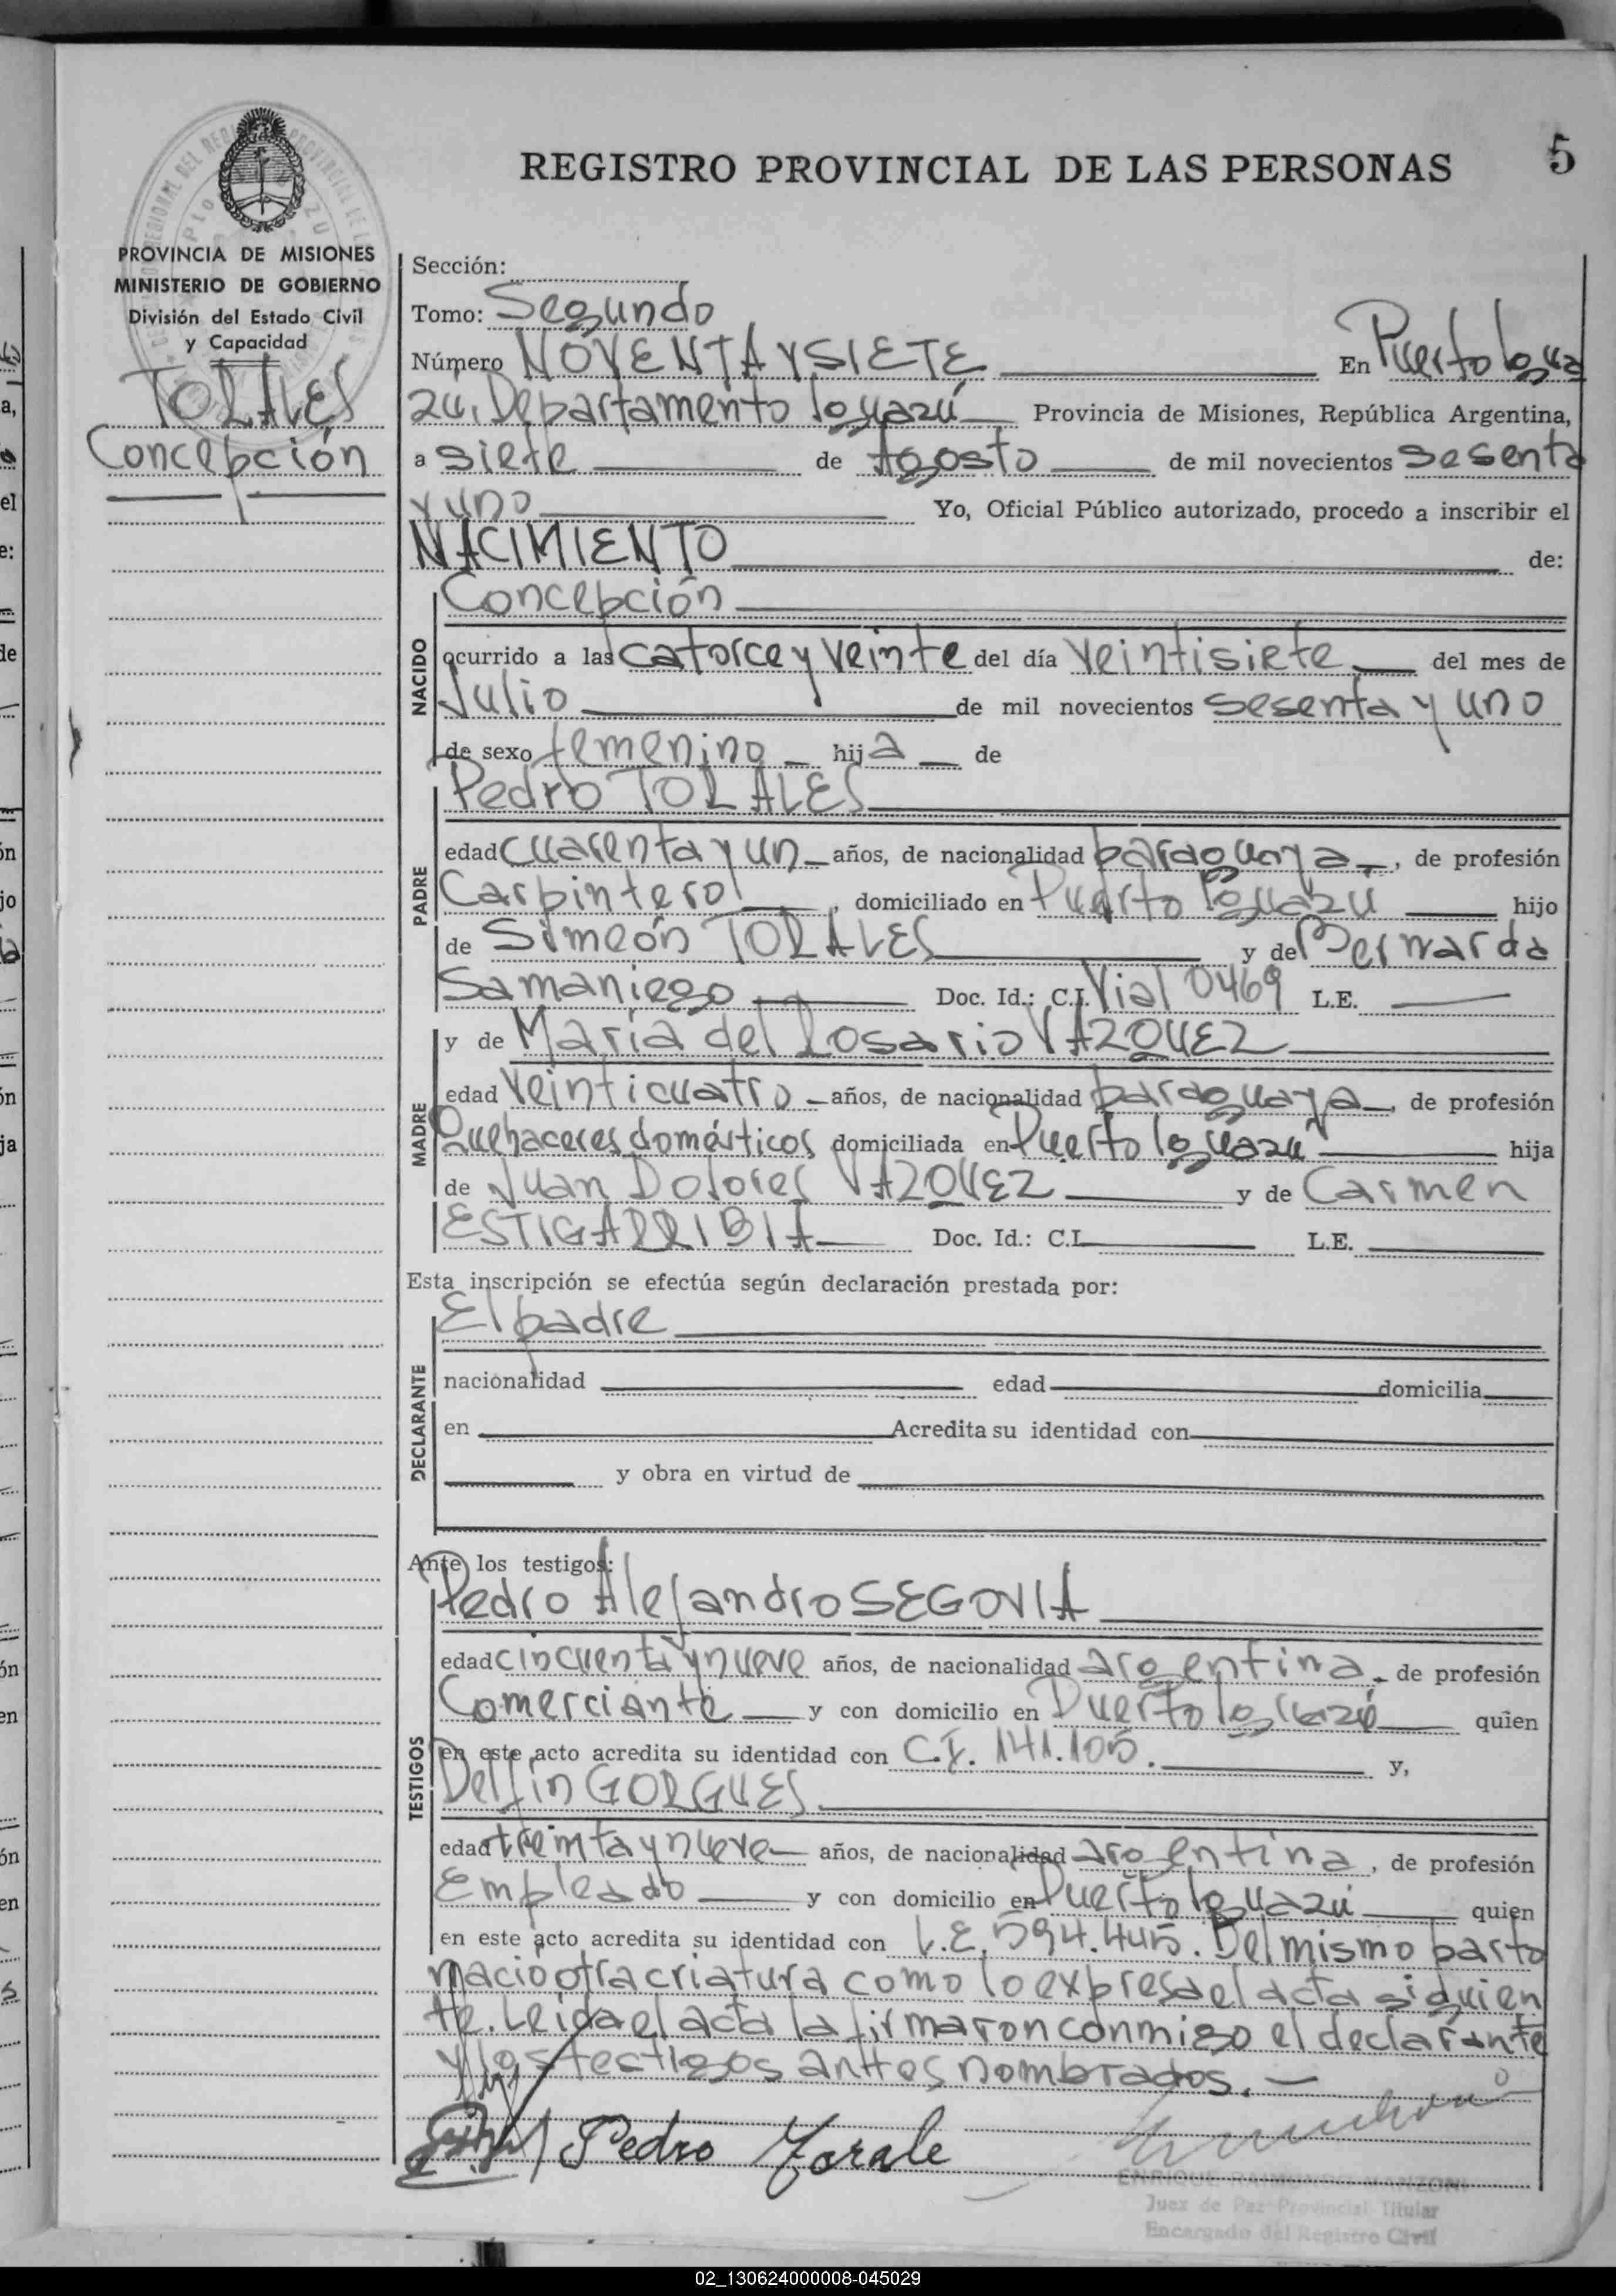 REGISTRO PROVINCIAL DE LAS PERSONAS 5
PROVINCIA DE MISIONES
MINISTERIO DE GOBIERNO
División del Estado Civil
y Capacidad
TORALES
Concepción
Sección:
Tomo: Segundo
Número NOVENTA Y SIETE En Puerto Igua
zú, Departamento Iguazú Provincia de Misiones, República Argentina,
a siete de Agosto de mil novecientos sesenta
y uno Yo, Oficial Público autorizado, procedo a inscribir el
NACIMIENTO de:
NACIDO
Concepción
ocurrido a las catorce y veinte del día veintisiete del mes de
Julio de mil novecientos sesenta y uno
de sexo femenino hija de
PADRE
Pedro TORALES
edad cuarenta y un años, de nacionalidad paraguaya, de profesión
Carpintero, domiciliado en Puerto Iguazú hijo
de Simeón TORALES y de Bernarda
Samaniego Doc. Id.: C.I. Vial 0469 L.E.
MADRE
y de María del Rosario VAZQUEZ
edad veinticuatro años, de nacionalidad paraguaya, de profesión
Quehaceres domésticos domiciliada en Puerto Iguazú hija
de Juan Dolores VAZQUEZ y de Carmen
ESTIGARRIBIA Doc. Id.: C.I. L.E.
Esta inscripción se efectúa según declaración prestada por:
DECLARANTE
El padre
nacionalidad edad domicilia
en Acredita su identidad con
y obra en virtud de
Ante los testigos:
TESTIGOS
Pedro Alejandro SEGOVIA
edad cincuenta y nueve años, de nacionalidad argentina, de profesión
Comerciante y con domicilio en Puerto Iguazú quien
en este acto acredita su identidad con C.I. 141.105. y,
Delfín GORGUES
edad treinta y nueve años, de nacionalidad argentina, de profesión
Empleado y con domicilio en Puerto Iguazú quien
en este acto acredita su identidad con L.E. 594.445. Del mismo parto
nacio otra criatura como lo expresa el acta siguien
te. Leida el acta la firmaron conmigo el declarante
y los testigos anttes nombrados.
Pedro Torale
ENRIQUE RAIMUNDO MANZONI
Juez de Paz Provincial Titular
Encargado del Registro Civil
02_130624000008-045029